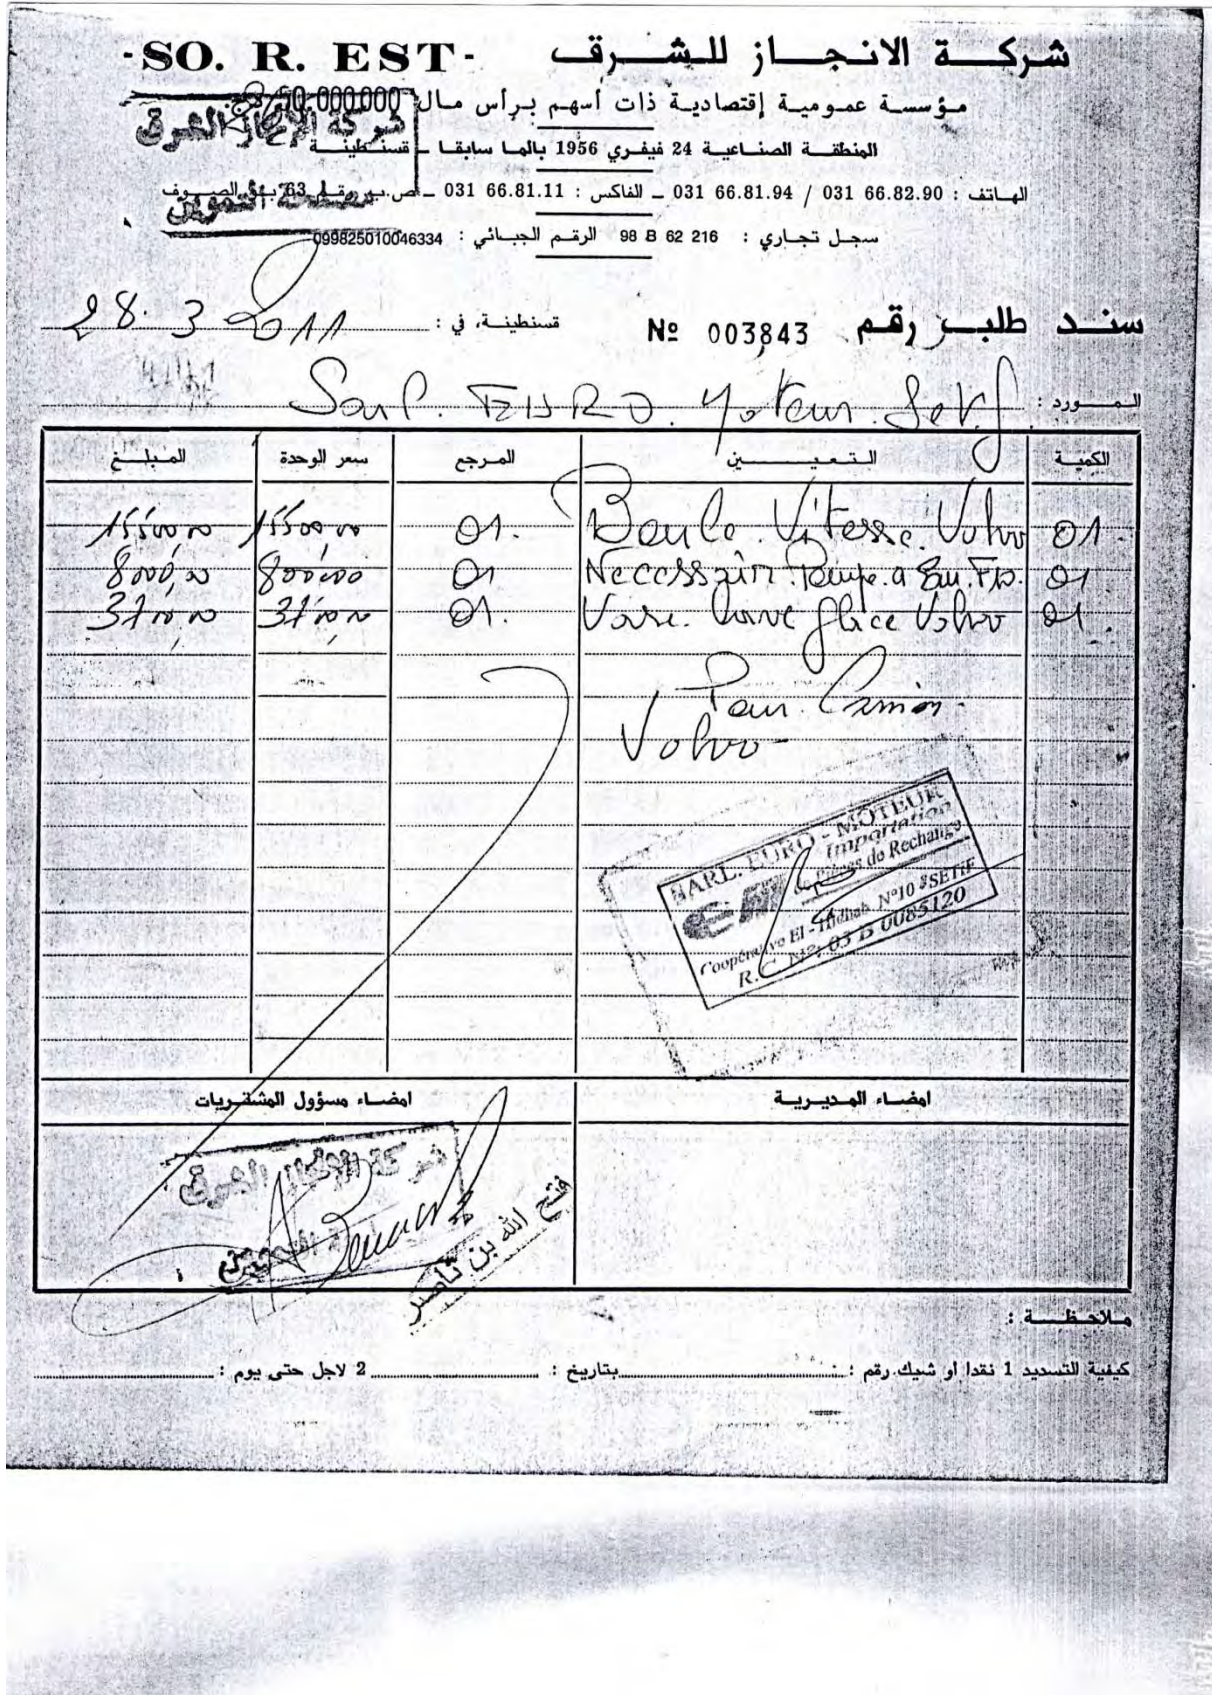 -SO. R. EST- شركة الانجاز للشرق
مؤسسة عمومية إقتصادية ذات أسهم برأس مال 50.000.000
شركة الإنجاز الشرق
المنطقة الصناعية 24 فيفري 1956 بالما سابقا ـ قسنطينة
الهاتف : 031 66.82.90 / 031 66.81.94 ـ الفاكس : 031 66.81.11 ـ ص.ب رقم 63 بو الصوف
سجل تجاري : 98 B 62 216 الرقم الجبائي : 099825010046334
سند طلب رقم 003843 Nº قسنطينة، في : 28.3 2011
المورد : Sarl. EURO. Moteur. Setif
الكمية التعيين المرجع سعر الوحدة المبلغ
01 Boule. Vitesse. Volvo 01. 15500,00 15500,00
01 Necessair. Pompe. a Eau. FD. 01 8000,00 8000,00
01. Vase. lave glace Volvo 01. 3700,00 3700,00
Pour. Camion.
Volvo
SARL. EURO - MOTEUR
Importation
de Pièces de Rechange
Coopérative El - Hidhab N°10 SETIF
R.C N°: 03 B 0085120
امضاء المديرية امضاء مسؤول المشتريات
شركة الإنجاز الشرق
فتح الله بن ناصر
ملاحظة :
كيفية التسديد 1 نقدا او شيك رقم : بتاريخ : 2 لاجل حتى يوم :